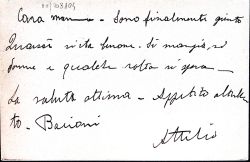 Cara mamma - Sono finalmente giunto
Quassù si sta benone. Si mangia, si
dorme e qualche volta si spara -
La salute ottima. Appetito
to - Bacioni
Attilio